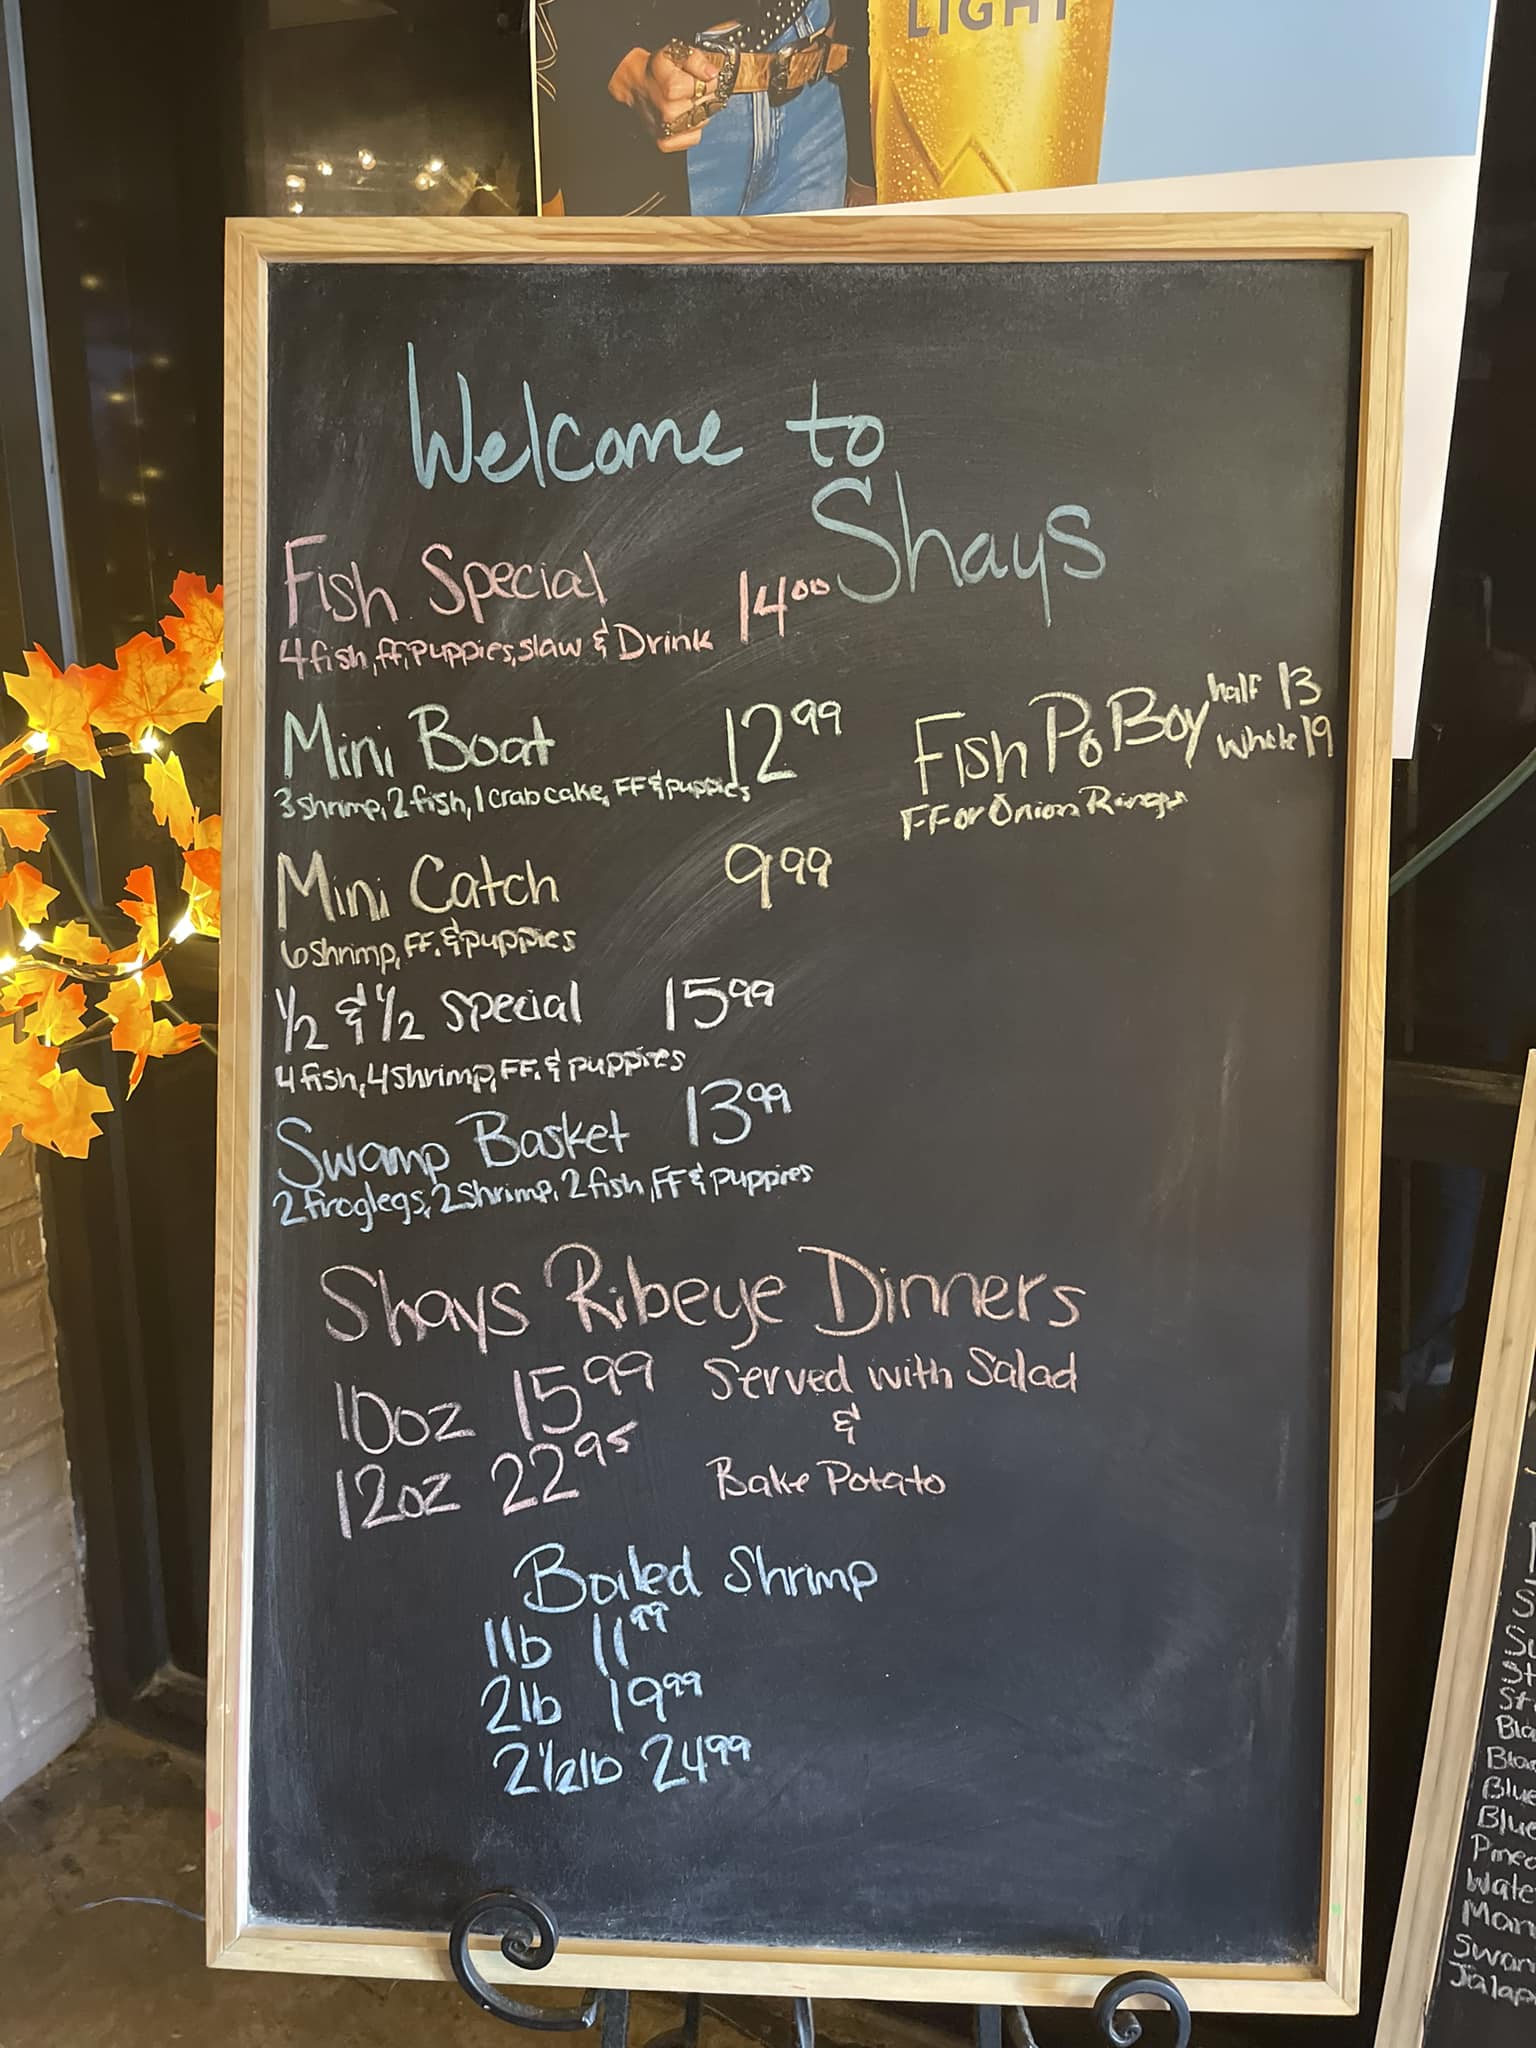 LIGHT
Welcome to
Shays
Fish Special 14.00
4 fish, ff, puppies, slaw & Drink
Mini Boat 12.99
3 shrimp, 2 fish, 1 crab cake, FF & puppies
Fish Po Boy half 13
Whole 19
FF or Onion Rings
Mini Catch 9.99
6 shrimp, FF. & puppies
1/2 & 1/2 Special 15.99
4 fish, 4 shrimp, FF. & puppies
Swamp Basket 13.99
2 froglegs, 2 shrimp, 2 fish, FF & puppies
Shays Ribeye Dinners
10oz 15.99 Served with Salad
&
12oz 22.95 Bake Potato
Boiled Shrimp
1lb 11.99
2lb 19.99
2 1/2lb 24.99
Blue